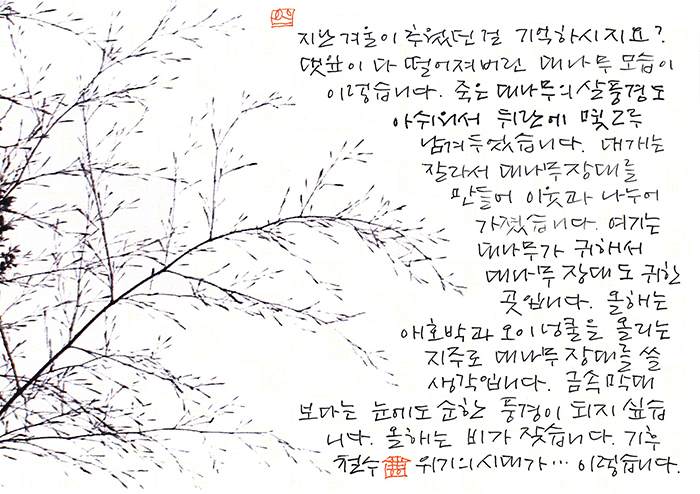 지난 겨울이 추웠던 걸 기억하시지요?
댓잎이 다 떨어져버린 대나무 모습이
이렇습니다. 죽은 대나무의 살풍경도
아쉬워서 뒤란에 몇그루
남겨두었습니다. 대개는
잘라서 대나무장대를
만들어 이웃과 나누어
가졌습니다. 여기는
대나무가 귀해서
대나무 장대도 귀한
곳입니다. 올해는
애호박과 오이 넝쿨을 올리는
지주로 대나무 장대를 쓸
생각입니다. 금속막대
보다는 눈에도 순한 풍경이 되지 싶습
니다. 올해는 비가 잦습니다. 기후
철수 위기의시대가… 이렇습니다.